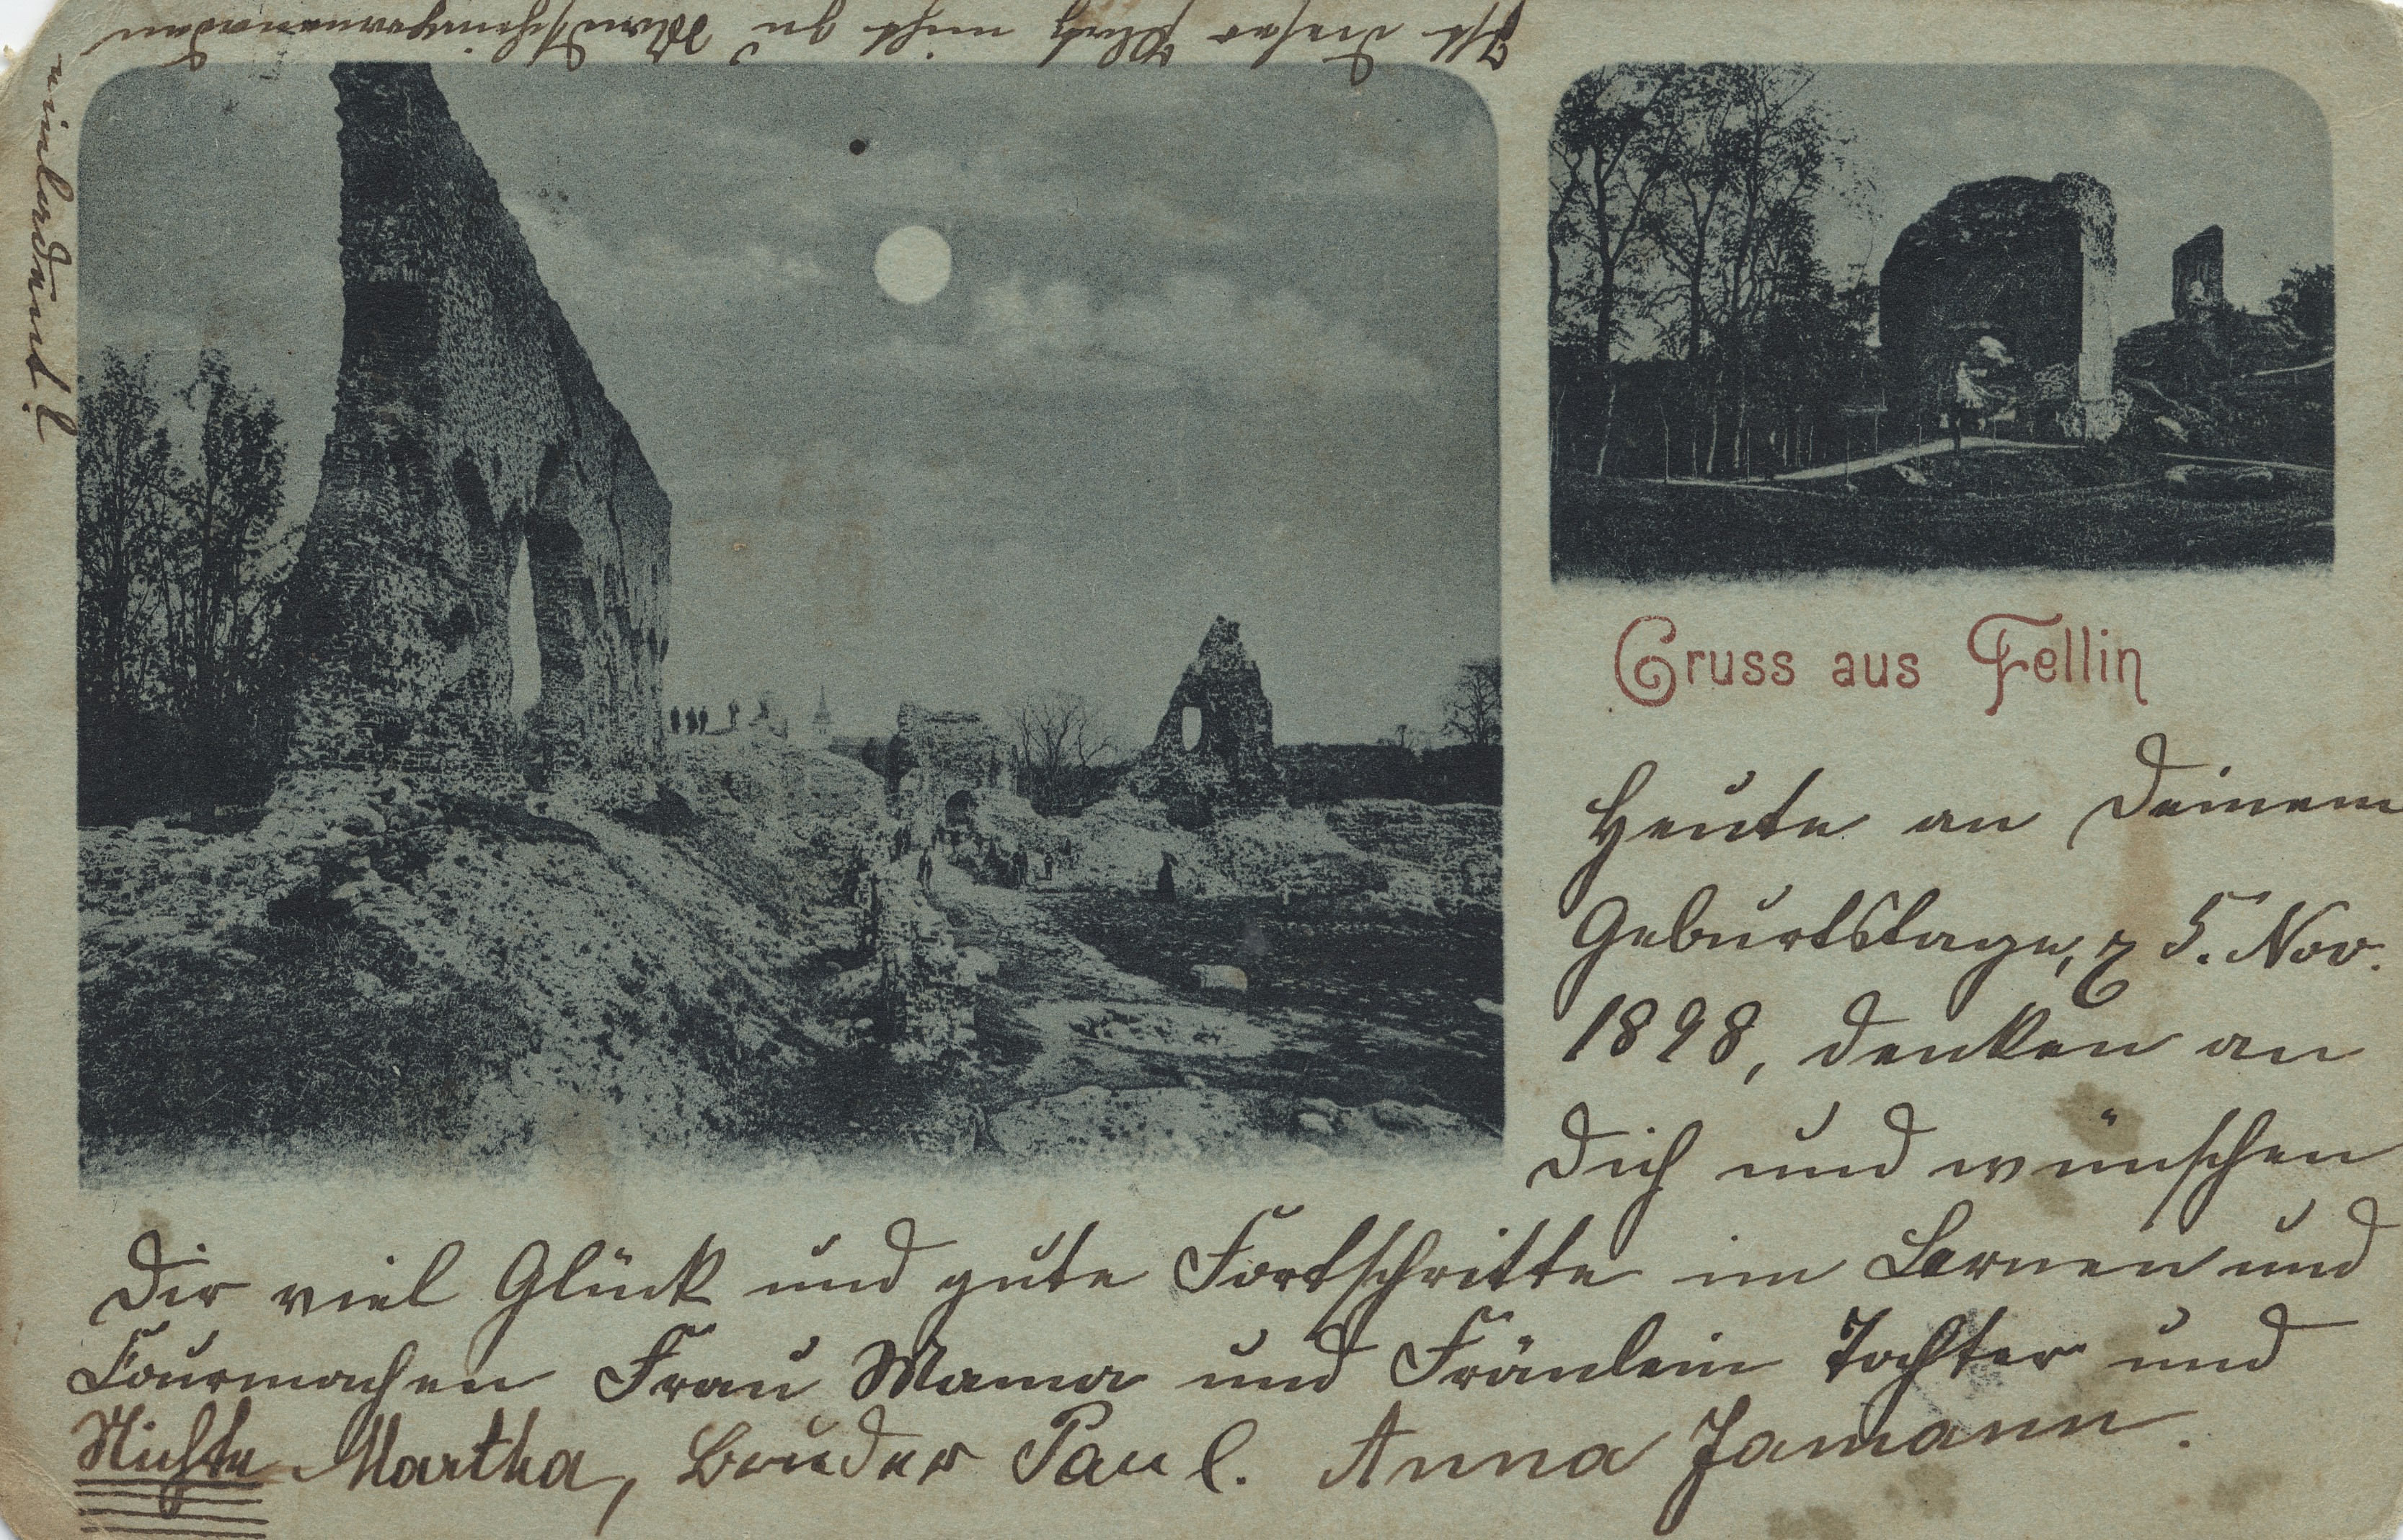 Ist dieser Platz nicht zu Mondscheinpromenaden
einladend!
Gruss aus Fellin
Heute an Deinem
Geburtstage, d. 5. Nov.
1898, denken an
Dich und wünschen
Dir viel Glück und gute Fortschritte im Lernen und
Courmachen Frau Mama und Fräulein Tochter und
Nichte Martha, Bruder Paul. Anna Jamann.